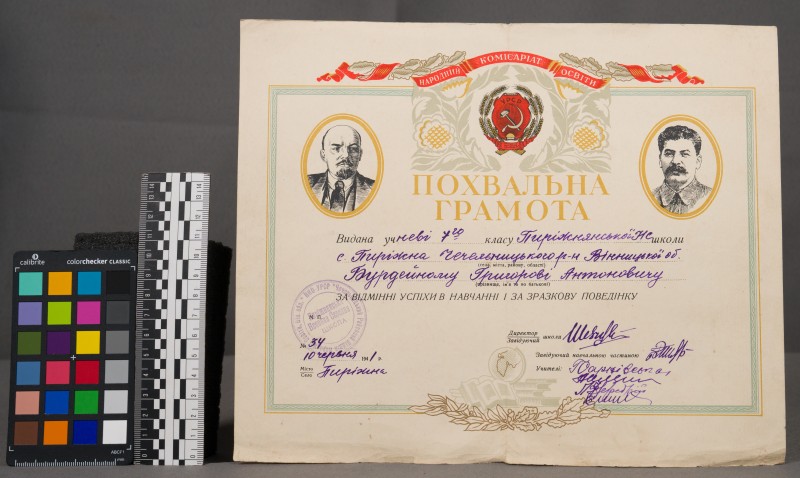 НАРОДНИЙ КОМІСАРІАТ ОСВІТИ
УРСР
ПОХВАЛЬНА
ГРАМОТА
Видана учневі 7го класу Пиріжнянської НС школи
с. Піріжна Чечельницького р-н Вінницької об.
(назва міста, району, області)
Бурдейному Григорові Антоновичу
(прізвище, ім'я та по батькові)
ЗА ВІДМІННІ УСПІХИ В НАВЧАННІ І ЗА ЗРАЗКОВУ ПОВЕДІНКУ
М. п.
Директор
Завідуючий школи
№ 34
10 червня 1941 р.
Завідуючий навчальною частиною
Місто
Село Піріжна
Учителі:
calibrite colorchecker CLASSIC
mm